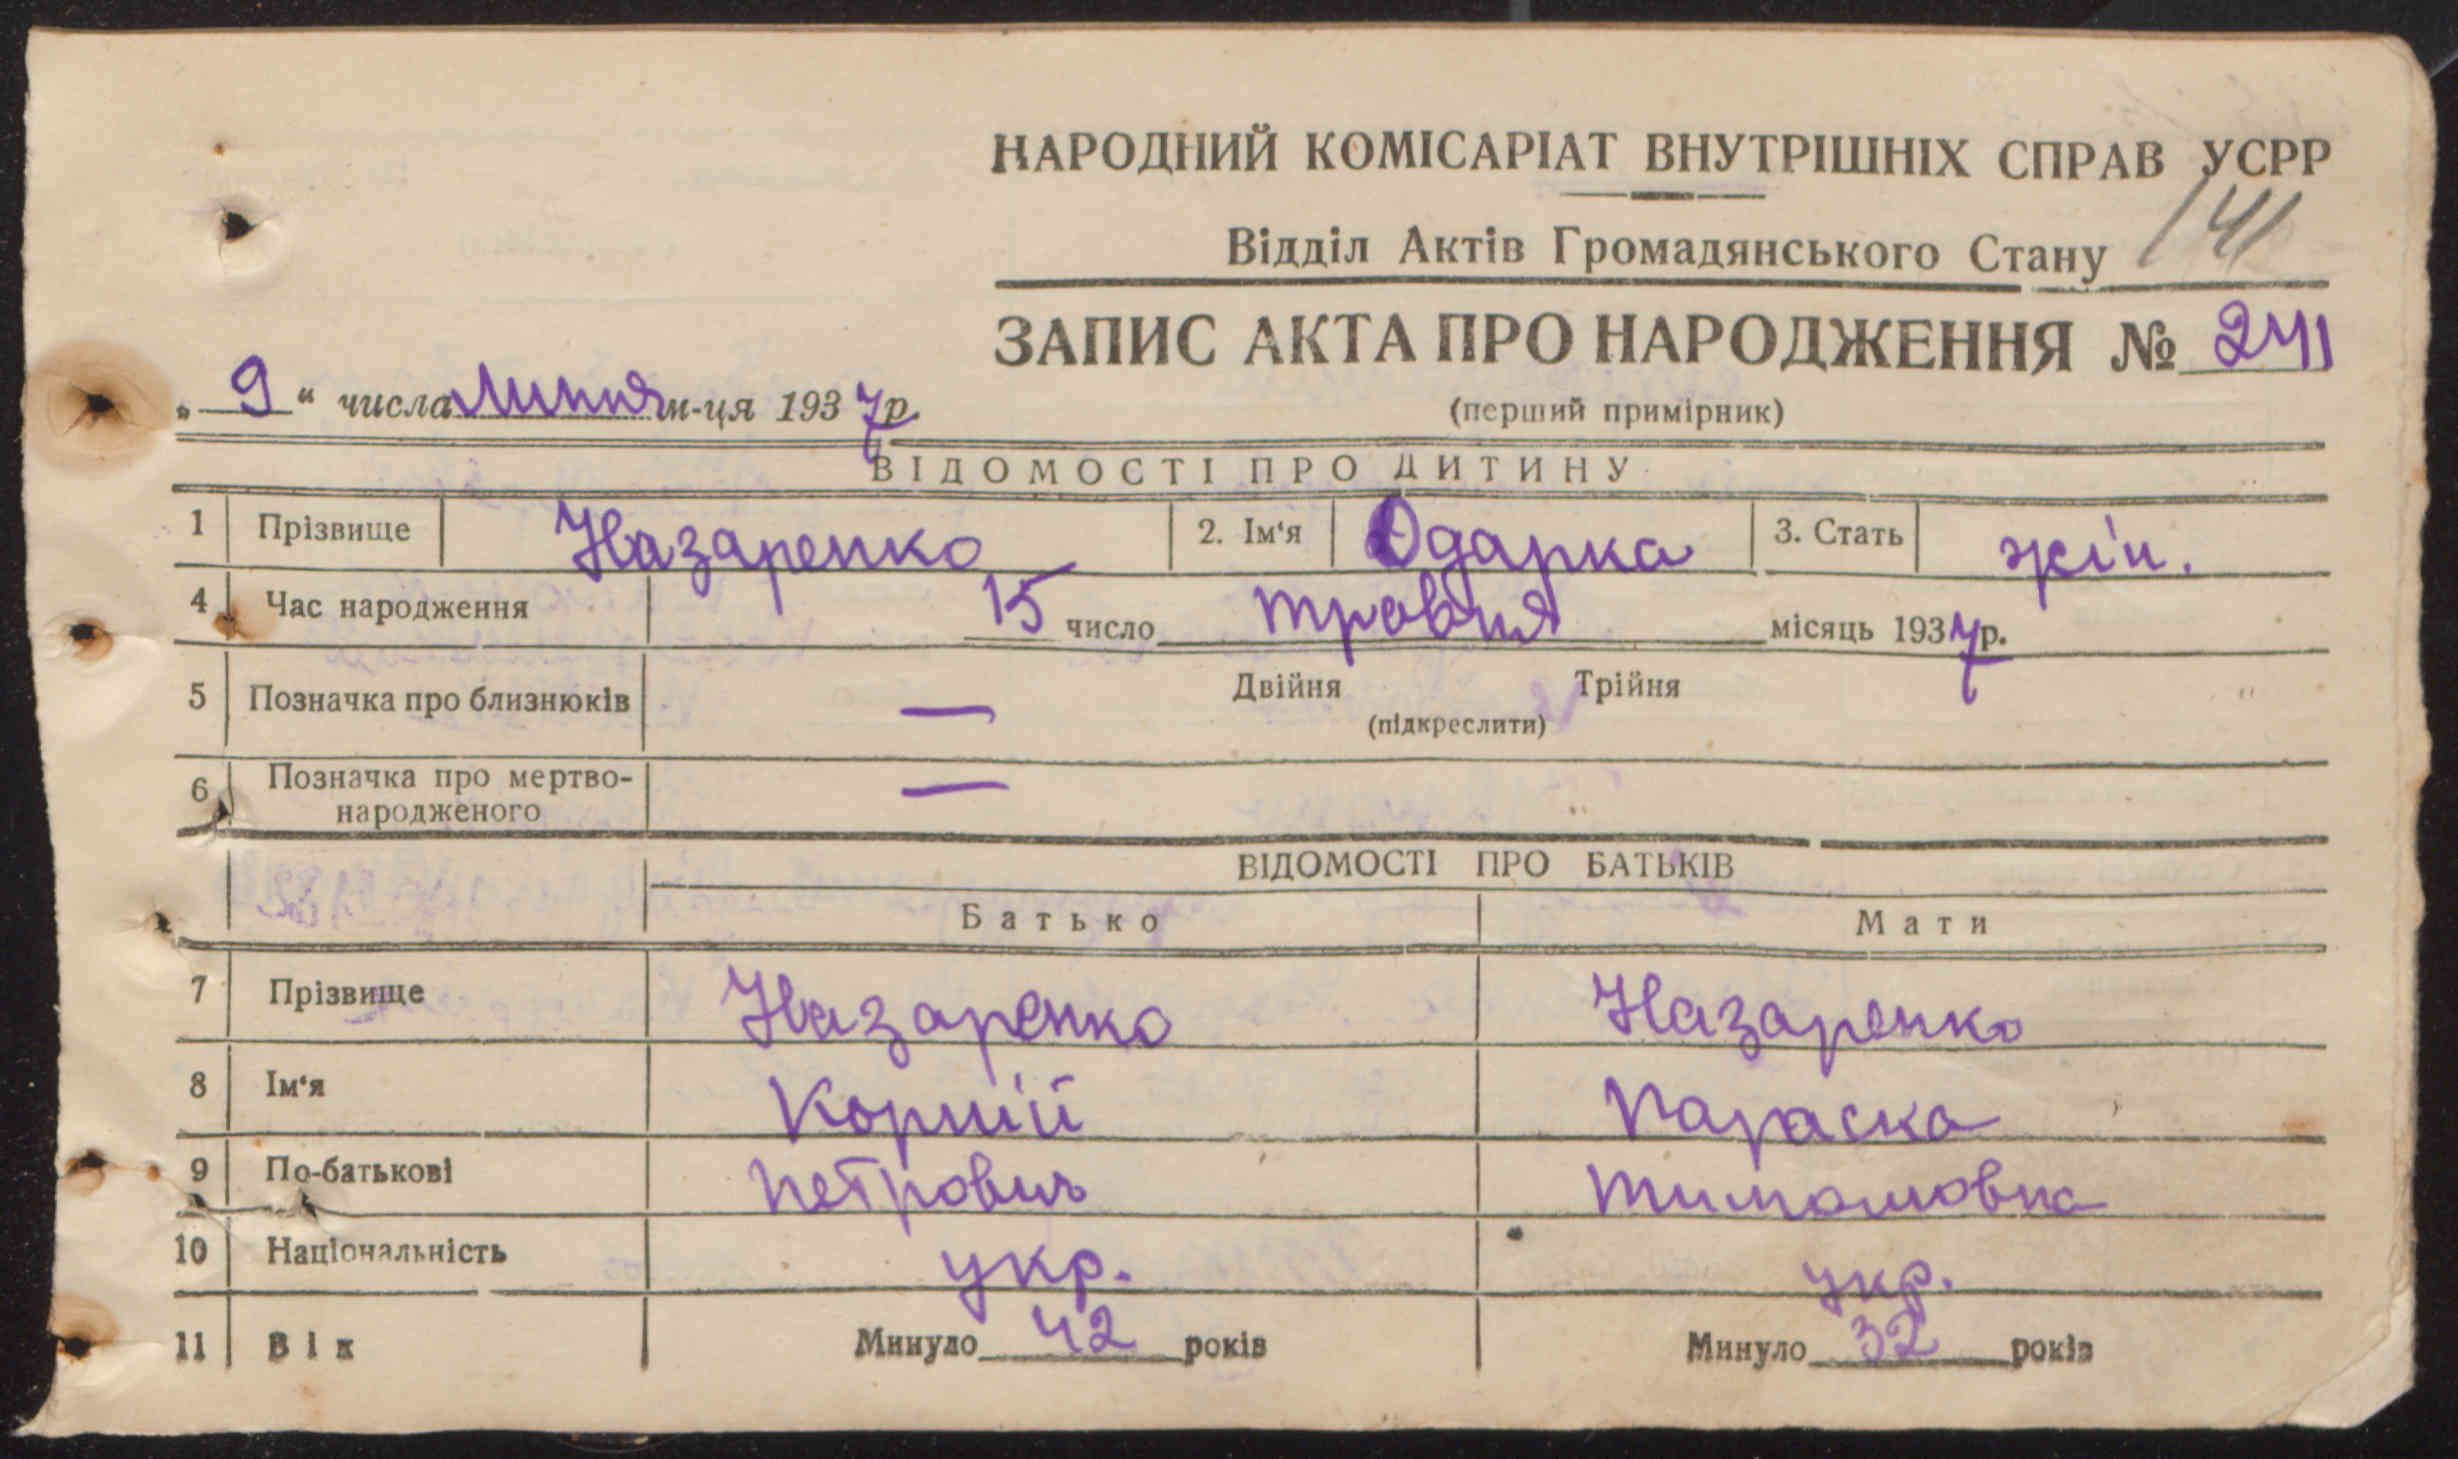 НАРОДНИЙ КОМІСАРІАТ ВНУТРІШНІХ СПРАВ УСРР
Відділ Актів Громадянського Стану 141
ЗАПИС АКТА ПРО НАРОДЖЕННЯ № 241
„ 9 “ числа Липня м-ця 1937 р.
(перший примірник)
ВІДОМОСТІ ПРО ДИТИНУ
1 Прізвище Назаренко 2. Ім‘я Одарка 3. Стать жін.
4 Час народження 15 число травня місяць 1937 р.
5 Позначка про близнюків — Двійня Трійня
(підкреслити)
6 Позначка про мертво-
народженого —
ВІДОМОСТІ ПРО БАТЬКІВ
Батько Мати
7 Прізвище Назаренко Назаренко
8 Ім‘я Корній Параска
9 По-батькові Петрович Тимошовна
10 Національність укр. укр.
11 Вік Минуло 42 років Минуло 32 років